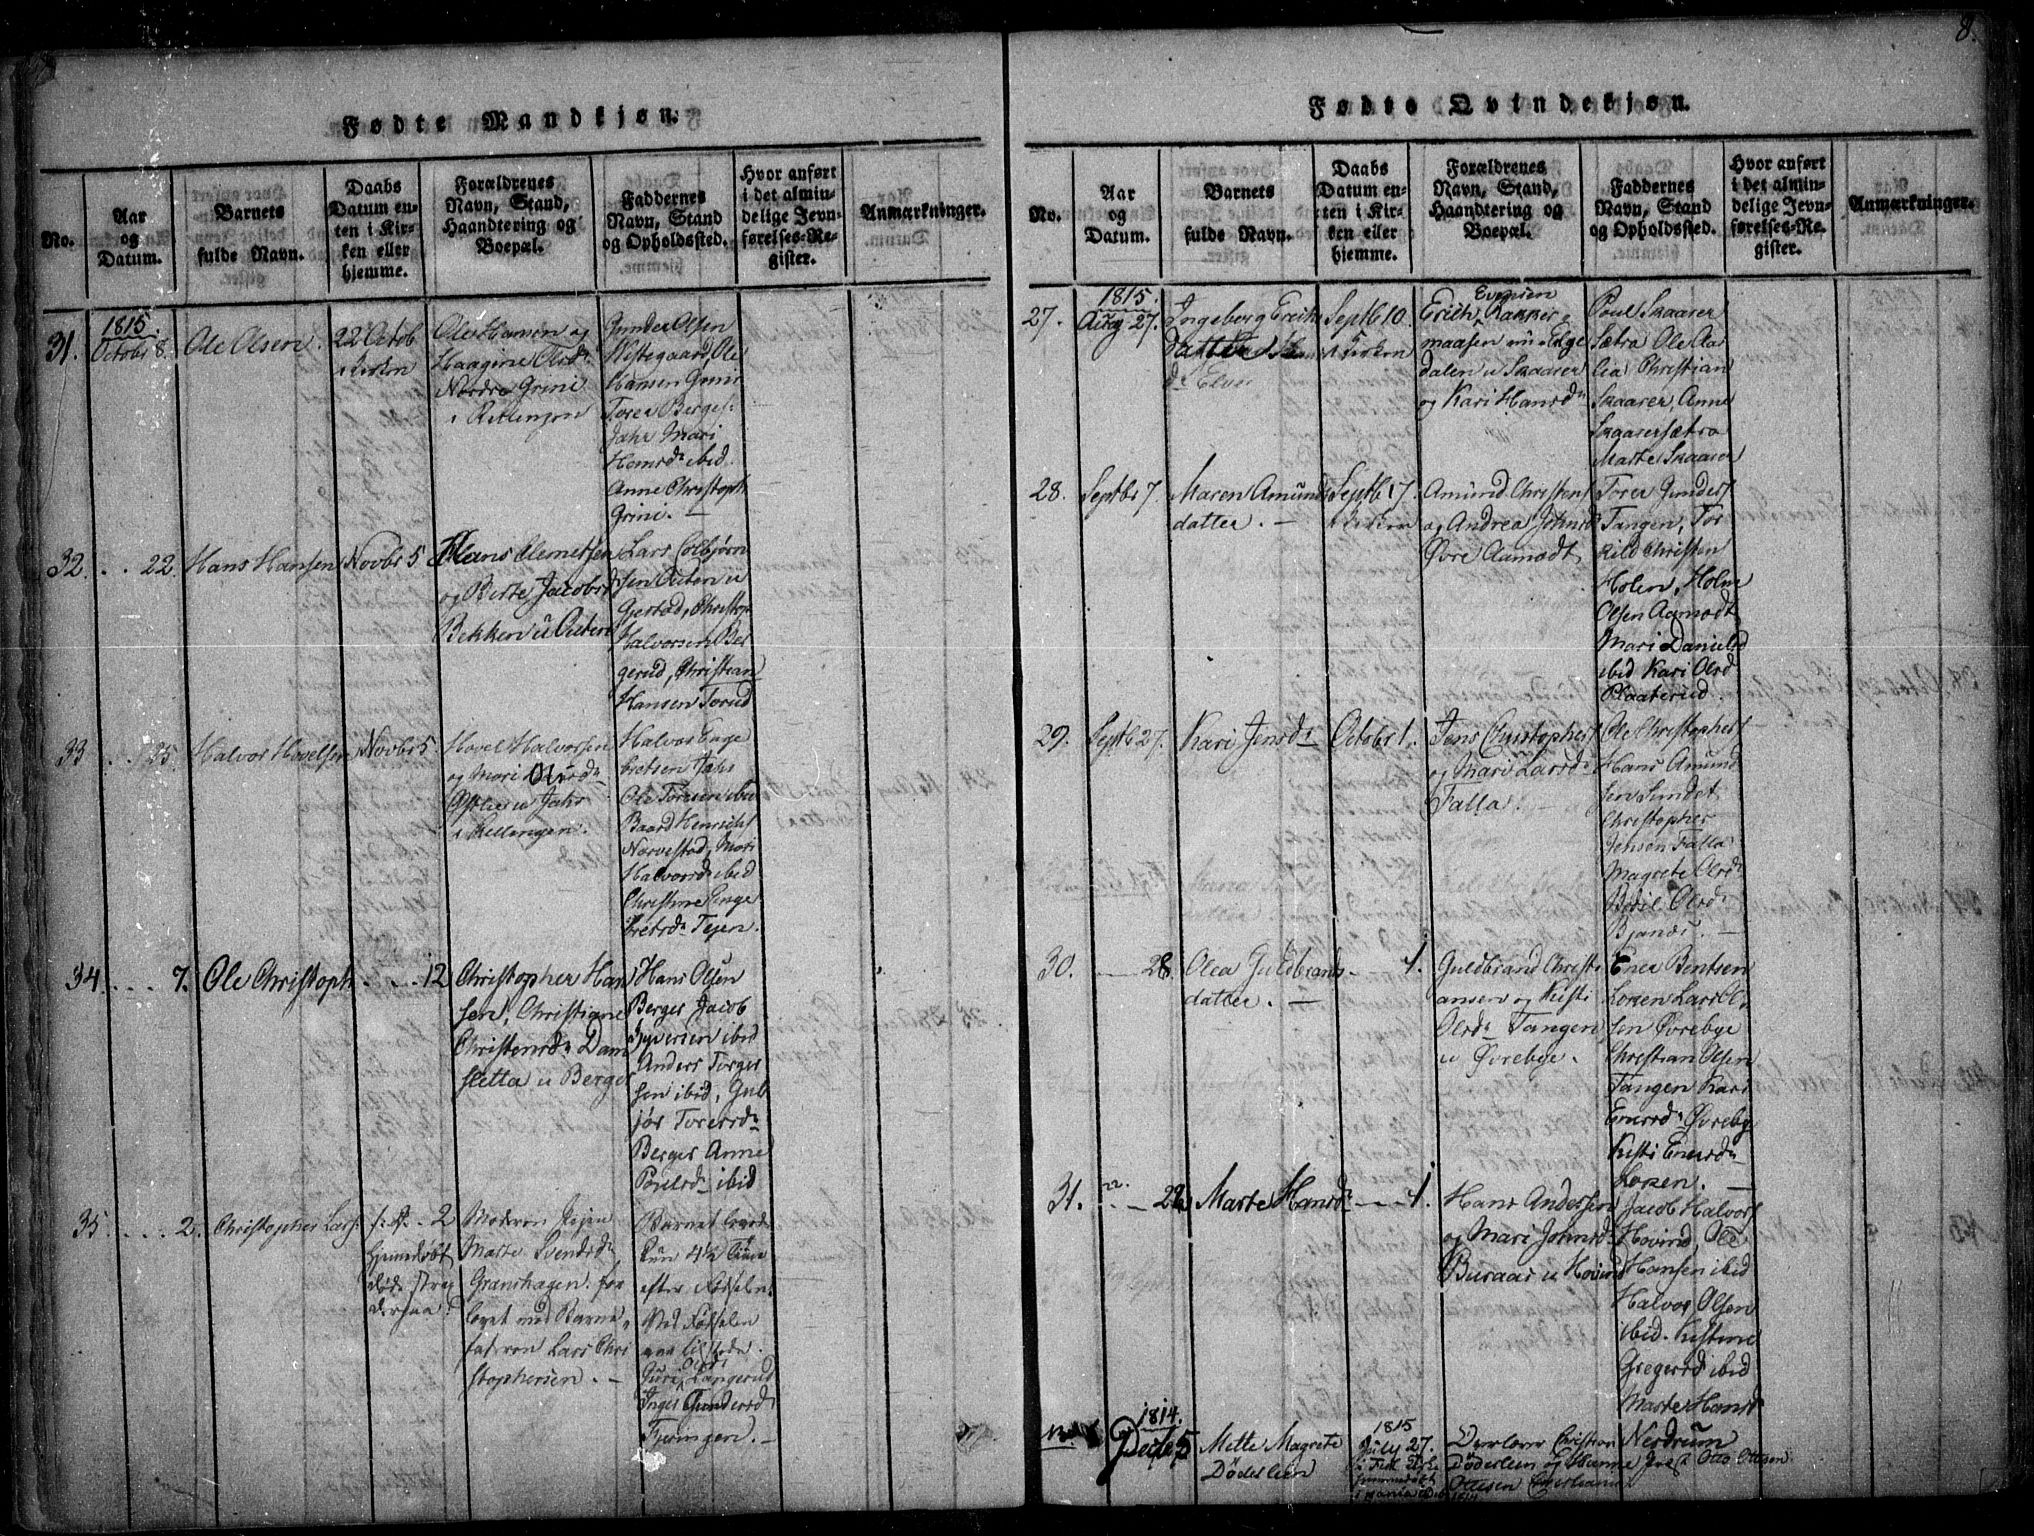 8.
Fødte Mandkjøn.
No.
Aar
og
Datum.
Barnets
fulde Navn.
Daabs
Datum en-
ten i Kir-
ken eller
hjemme.
Forældrenes
Navn, Stand,
Haandtering og
Boepæl.
Faddernes
Navn, Stand
og Opholdssted.
Hvor anført
i det almin-
delige Jevn-
førelses-Re-
gister.
Anmærkninger.
31.
1815.
Octobr 8.
Ole Olsen.
22 Octob
i Kirken
Ole Hansen og
Haagine Olsdr
Nordre Grini
Gunder Olsen
Westegaard, Ole
Hansen Grini
Torer Berges:
Jahr Mari
Hansdr ibid
Anne Christoph
Grini. —
32. . . 22.
Hans Hansen
Novbr 5
Hans Clemetsen
og Berte Jacobsd
Bekken u Outen
Lars Colbjørn
sen Outen u
Gjestad, Christop
Halvorsen Ber
gerud, Christian
Hansen Torud
33 . . . 25.
Halvor Hovelsen
Novbr 5.
Hovel Halvorsen
og Mari Olsdr
u Jahr
Halvor Enge
bretsen Jahr
Ole Toresen ibid
Baard Henrichs
Narvestad, Mari
Halvorsdr ibid
Christine Enge
bretsdr Tejen.
34 . . . 7.
Ole Christoph.
. . . 12
Christopher Han
sen, Christiane
Christensdr Dam
sletta u Berger
Hans Olsen
Berger Jacob
Syversen ibid
Anders Torger
sen ibid, Gul
jør Toresdr
Berger Anne
Poulsdr ibid
35 . . . 2.
Christopher Lars:
2
hjemmedøbt
død strax
derpaa
Moderen Pigen
Marte Svendsdr
Granshagen for
lovet med Barne-
faderen Lars Chri
stophersen. —
Barnet levede
kun 4½ Time
efter Fødselen.
Ved Fødselen
var tilstede.
Guri Olsdr Langerud
Inger Gundersd
Fjeringen. —
Fødte Qvindekjøn.
No.
Aar
og
Datum.
Barnets
fulde Navn.
Daabs
Datum en-
ten i Kir-
ken eller
hjemme.
Forældrenes
Navn, Stand,
Haandtering og
Boepæl.
Faddernes
Navn, Stand
og Opholdssted.
Hvor anført
i det almin-
delige Jevn-
førelses-Re-
gister.
Anmærkninger.
27.
1815.
Aug 27.
Ingeborg Erichs
datter
Septb 10.
i Kirken
Erich Evensen Bakker
maasen u Elge
dalen u Skaarer
og Kari Hansdr
Poul Skaarer
Sætra Ole Aa
lia Christian
Skaarer, Anne
Skaarersætra
Marte Skaarer
28. Septbr 7.
Maren Amunds
datter. —
Septb 17.
i Kirken
Amund Christens
og Andrea Johnsd
Øvre Aamodt
Torer Gunders
Tangen, Tor
kild Christen
Holen, Holm
Olsen Aamodt
Mari Danielsd
ibid Kari Olsd
Plaaterud.
29. Septb 27.
Kari Jensdr
Octobr 1.
Jens Christophers
og Mari Larsdr
Falla.
Ole Christophers
Hans Amund
sen Sundet
Christopher
Jensen Falla
Magrete Olsdr
Beril Olsdr
30. — 28.
Olea Guldbrands
datter. —
— 1.
Guldbrand Christi
ansen og Kisti
Olsdr Tangen
u Øvrebye.
Ener Bentsen
Losen Lars Ol
sen Øvrebye
Christian Olsen
Tangen Kari
Enersdr Øvreby
Kisti Enersdr
Losen. —
31. — 28
Marte Hansdr
— 1.
Hans Andersen
og Mari Johnsdr
Buraas u Hovind
Jacob Halvors
Hovind, Ole
Hansen ibid
Halvor Olsen
ibid. Kistine
Gregersd ibid
Marte Hansd
1814.
Decbr 5
Mette Magrete
Døderlein
1815
July 27.
hjemmedøbt
Christian
Døderlein og Hanne
Ottesen Christiania
Nerdrum
Otto Ottesen